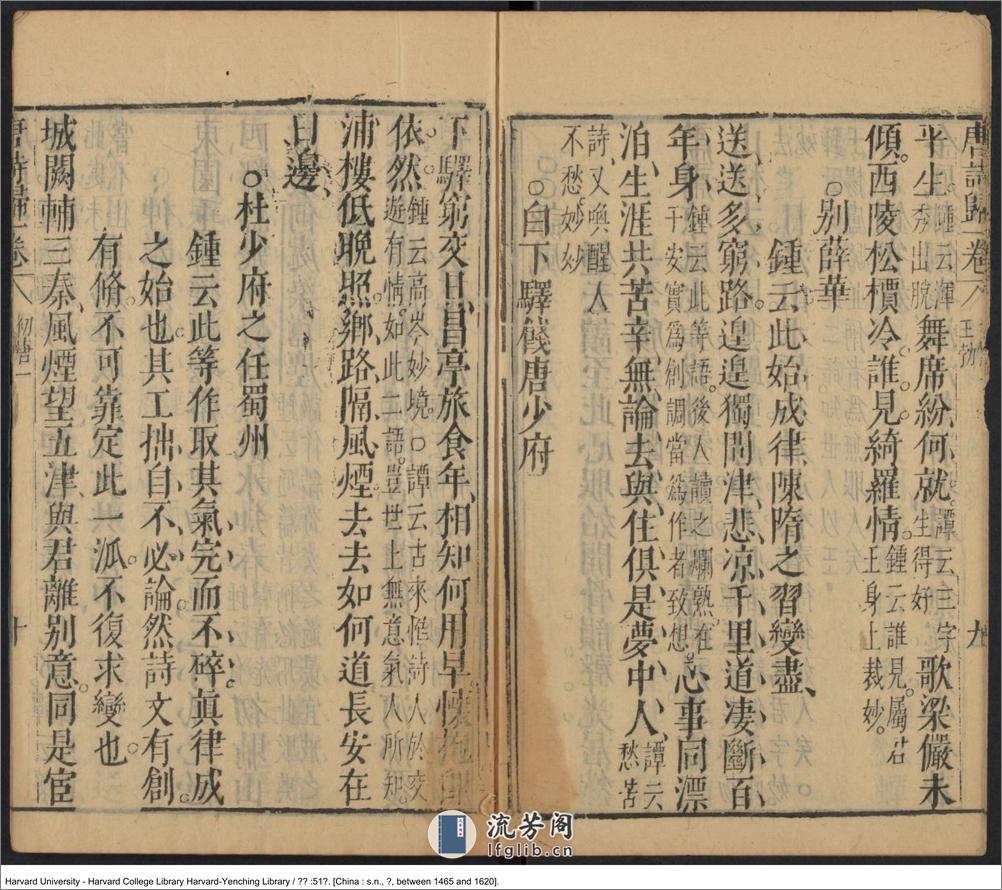 唐詩歸卷八 王勃 九
平生鍾云渾秀出脫舞席紛何就譚云三字生得好歌梁儼未
傾西陵松檟冷誰見綺羅情鍾云誰見屬君王身上裁妙
○別薛華
鍾云此始成律陳隋之習變盡
送送多窮路遑遑獨問津悲凉千里道凄斷百
年身鍾云此等語後人讀之爛熟在于安實爲創調當爲作者致想心事同漂
泊生涯共苦辛無論去與住俱是夢中人譚云愁苦
詩又喚醒人不愁妙妙
○白下驛餞唐少府
下驛窮交日昌亭旅食年相知何用早懷抱即
依然鍾云高岑妙境○譚云古來惟詩人於交遊有情如此二語豈世上無意氣人所知
浦樓低晚照鄉路隔風煙去去如何道長安在
日邊
○杜少府之任蜀州
鍾云此等作取其氣完而不碎眞律成
之始也其工拙自不必論然詩文有創
有脩不可靠定此一派不復求變也
城闕輔三秦風煙望五津與君離別意同是宦
唐詩歸卷八 初唐二 十
流芳阁
lfglib.cn
Harvard University - Harvard College Library Harvard-Yenching Library / ?? :51?. [China : s.n., ?, between 1465 and 1620].